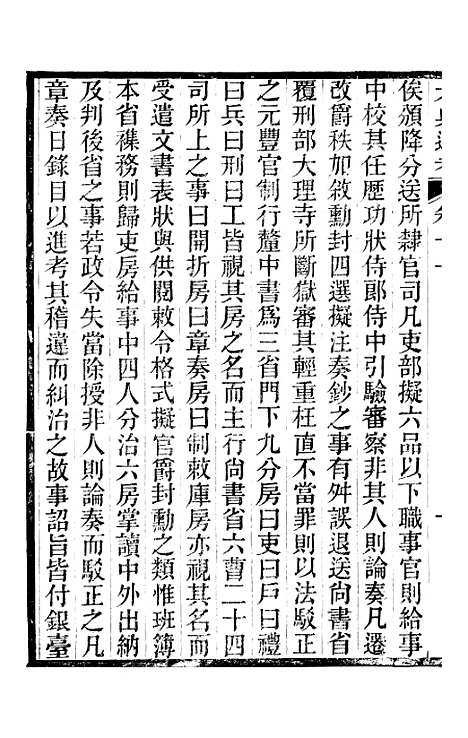 俟頒降分送所隸官司凡吏部擬六品以下職事官則給事
中校其任歷功狀侍郎侍中引驗審察非其人則論奏凡遷
改爵秩加敘勳封四選擬注奏鈔之事有舛誤退送尚書省
覆刑部大理寺所斷獄審其輕重枉直不當罪則以法駁正
之元豐官制行釐中書爲三省門下九分房曰吏曰戶曰禮
曰兵曰刑曰工皆視其房之名而主行尚書省六曹二十四
司所上之事曰開折房曰章奏房曰制敕庫房亦視其名而
受遣文書表狀與供閱敕令格式擬官爵封勳之類惟班簿
本省襍務則歸吏房給事中四人分治六房掌讀中外出納
及判後省之事若政令失當除授非人則論奏而駁正之凡
章奏日錄目以進考其稽違而糾治之故事詔旨皆付銀臺